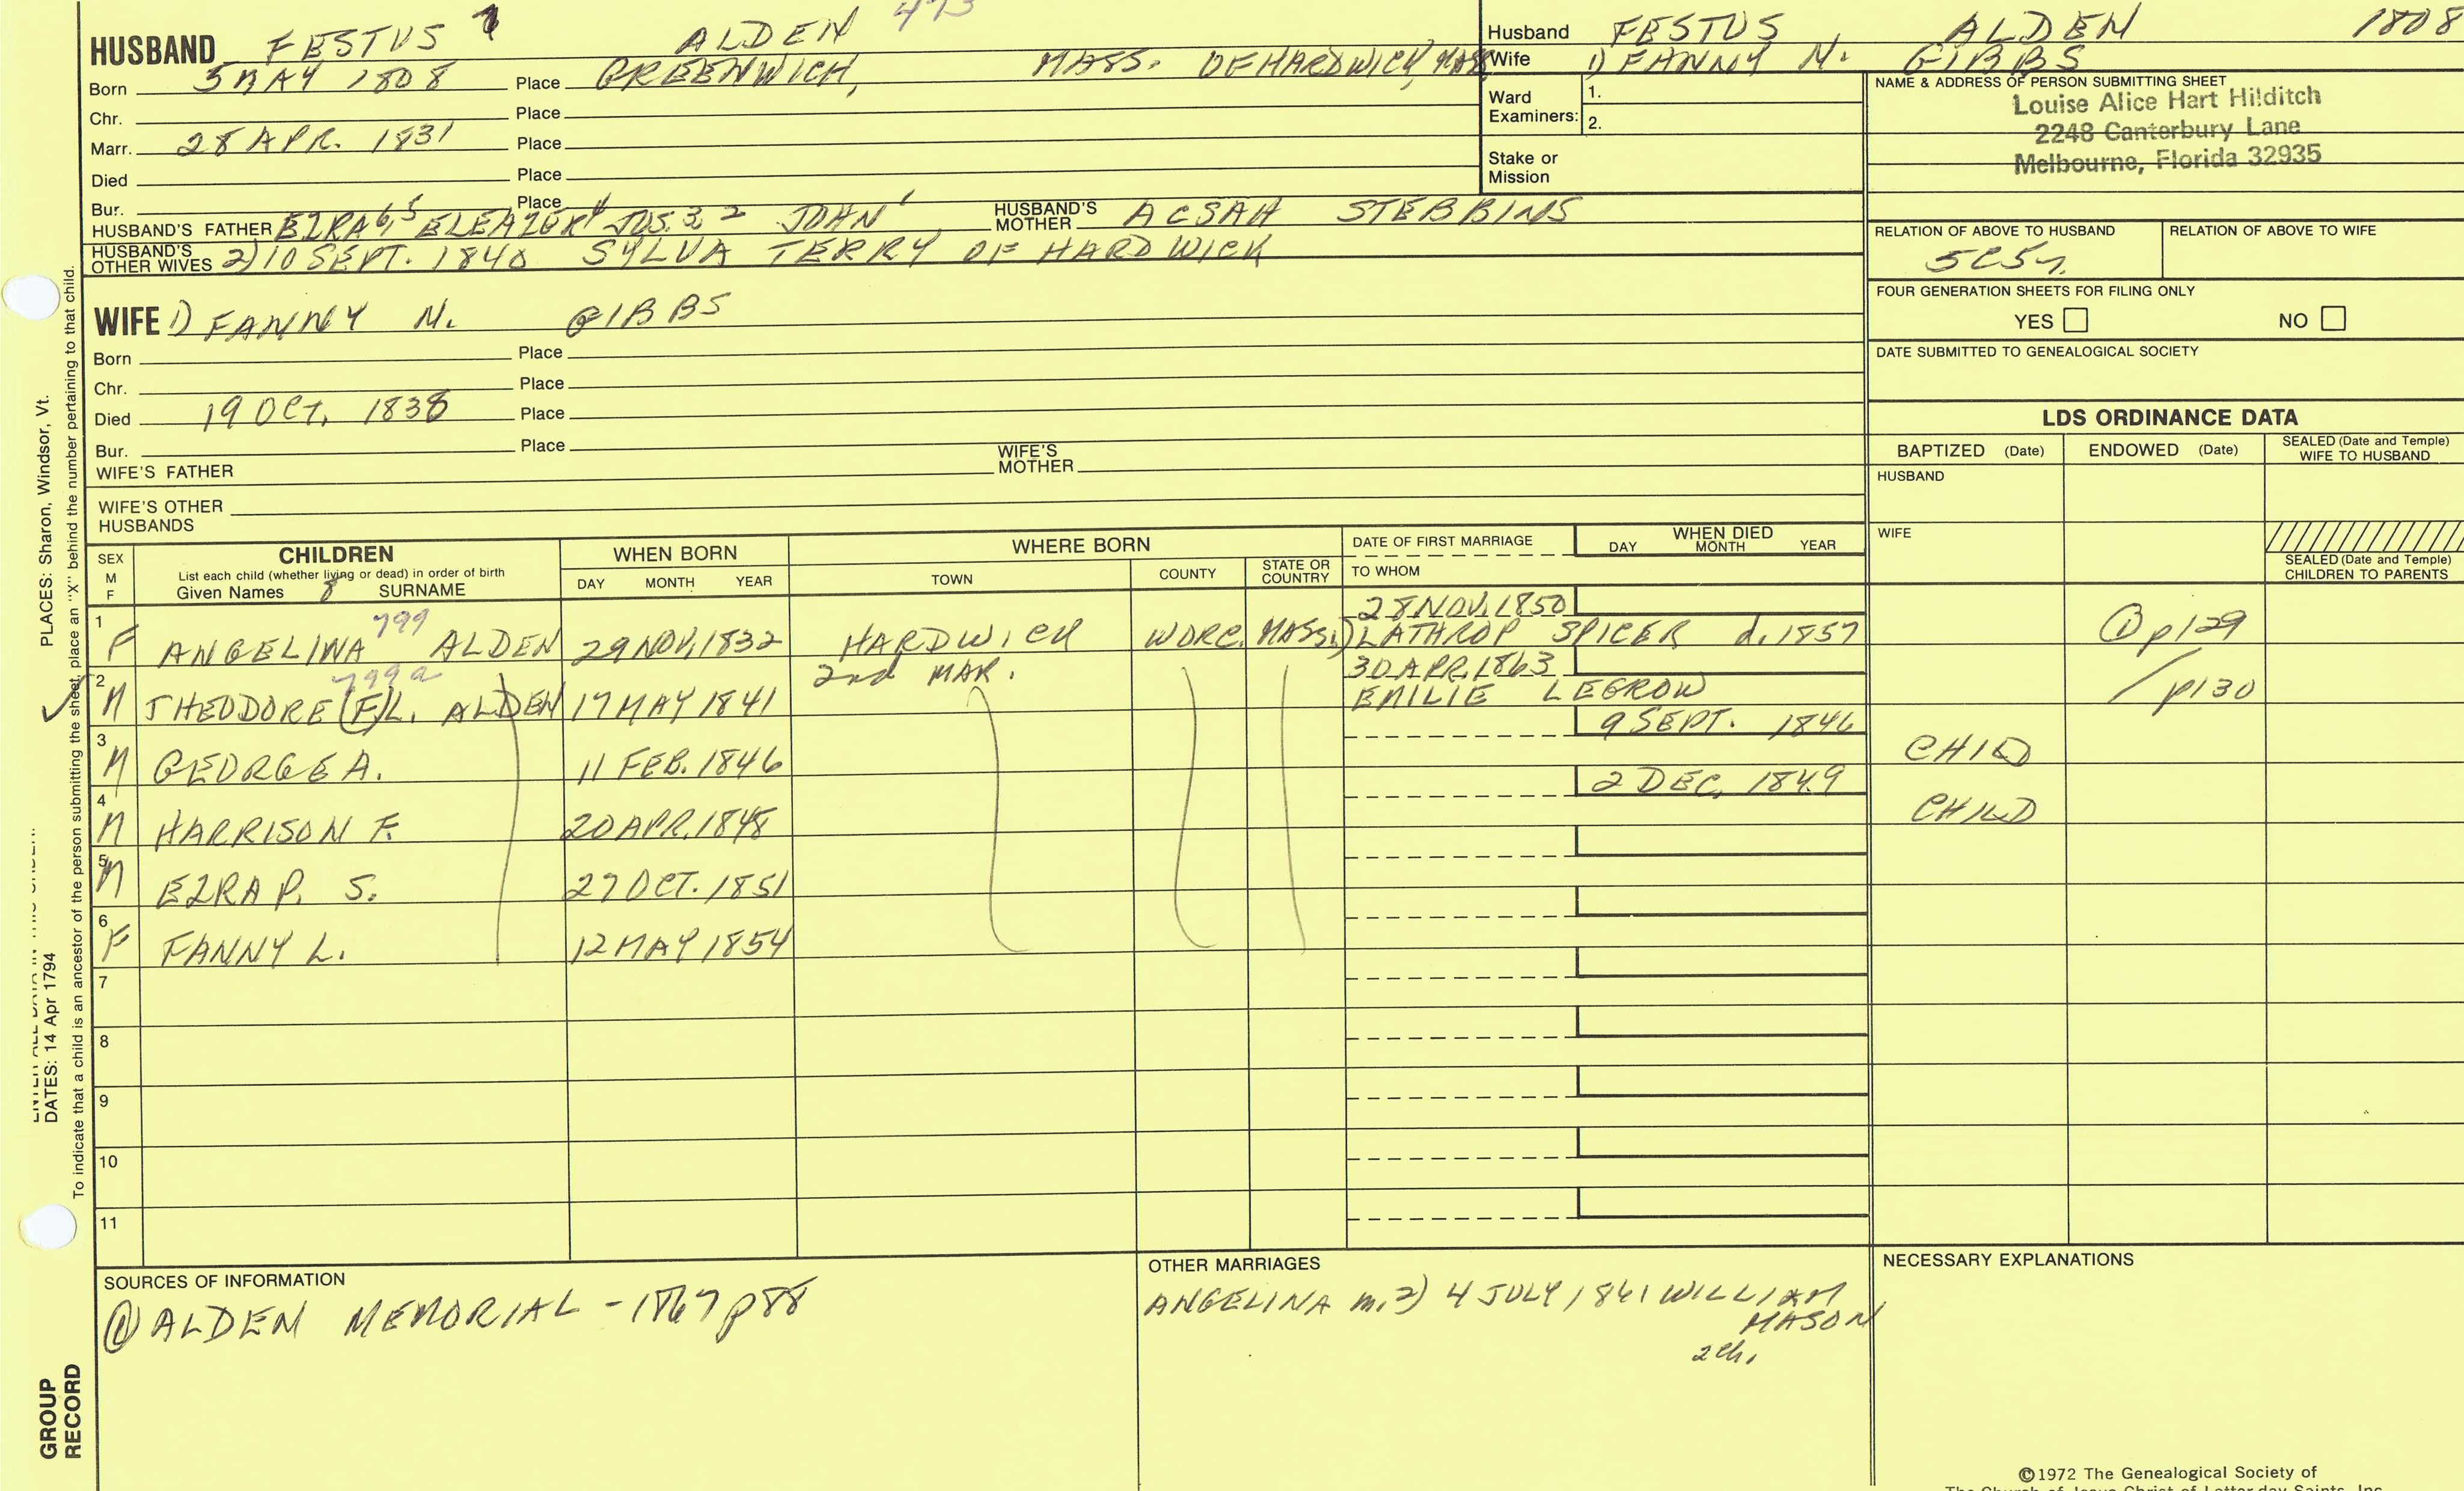 473
HUSBAND FESTUS 7 ALDEN
Born 5 MAY 1808 Place GREENWICH, MASS. OF HARDWICK, MASS
Chr. Place
Marr. 28 APR. 1831 Place
Died Place
Bur. Place
HUSBAND'S FATHER EZRA 6, 5 ELEAZER 4 JOS. 3, 2 JOHN 1 HUSBAND'S MOTHER ACSAH STEBBINS
HUSBAND'S OTHER WIVES 2) 10 SEPT. 1840 SYLVA TERRY OF HARDWICK
WIFE 1) FANNY M. GIBBS
Born Place
Chr. Place
Died 19 OCT. 1838 Place
Bur. Place
WIFE'S FATHER WIFE'S MOTHER
WIFE'S OTHER HUSBANDS
Husband FESTUS ALDEN 1808
Wife 1) FANNY M. GIBBS
Ward Examiners: 1.
2.
Stake or Mission
NAME & ADDRESS OF PERSON SUBMITTING SHEET
Louise Alice Hart Hilditch
2248 Canterbury Lane
Melbourne, Florida 32935
RELATION OF ABOVE TO HUSBAND RELATION OF ABOVE TO WIFE
5C5r.
FOUR GENERATION SHEETS FOR FILING ONLY
YES NO
DATE SUBMITTED TO GENEALOGICAL SOCIETY
LDS ORDINANCE DATA
BAPTIZED (Date) ENDOWED (Date) SEALED (Date and Temple) WIFE TO HUSBAND
HUSBAND
WIFE
SEALED (Date and Temple) CHILDREN TO PARENTS
SEX M F CHILDREN WHEN BORN WHERE BORN DATE OF FIRST MARRIAGE WHEN DIED
List each child (whether living or dead) in order of birth
Given Names 8 SURNAME DAY MONTH YEAR TOWN COUNTY STATE OR COUNTRY TO WHOM DAY MONTH YEAR
799 28 NOV. 1850
1 F ANGELINA ALDEN 29 NOV. 1832 HARDWICK WORC. MASS. 1) LATHROP SPICER d. 1857 ① p129
799a 2nd MAR. 30 APR. 1863
2 M THEODORE (F)L. ALDEN 17 MAY 1841 EMILIE LEGROW p130
9 SEPT. 1846
3 M GEORGE A. 11 FEB. 1846 CHILD
2 DEC. 1849
4 M HARRISON F. 20 APR. 1848 CHILD
5 M EZRA P. S. 27 OCT. 1851
6 F FANNY L. 12 MAY 1854
7
8
9
10
11
SOURCES OF INFORMATION
① ALDEN MEMORIAL - 1867 p88
OTHER MARRIAGES
ANGELINA m. 2) 4 JULY 1861 WILLIAM
MASON
2 ch.
NECESSARY EXPLANATIONS
©1972 The Genealogical Society of
The Church of Jesus Christ of Latter-day Saints, Inc.
PLACES: Sharon, Windsor, Vt.
DATES: 14 Apr 1794
To indicate that a child is an ancestor of the person submitting the sheet, place an "X" behind the number pertaining to that child.
GROUP
RECORD